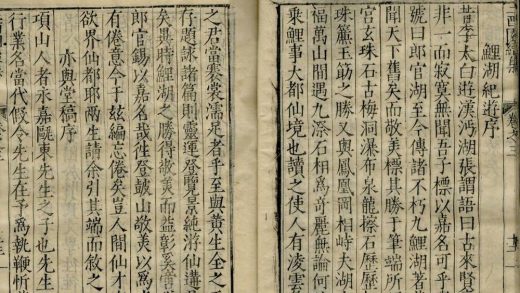 鯉湖紀遊序
昔李太白遊漢沔湖張謂語曰古來賢
非一而寂寞無聞吾子標以嘉名可乎
號曰郎官湖至今傳諸不朽九鯉湖著
聞天下舊矣而敬美標其勝于筆端所
官玄珠石古梅洞瀑布泉龍擦石歷歷
珠簾玉筯之勝又與鳳凰岡相峙夫湖
福萬山間遇九漈石相為奇麗無論何
乘鯉事大都仙境也讀之使人有凌雲
之君當褰裳濡足者乎至與黃生全之
存題詠諸篇則靈運登覽景純游仙遘
矣異時鯉湖之勝得敬美而益彰奚啻
郎官錫以嘉名哉往登皷山敬美以為
有倦意今于茲編忘倦矣豈人間仙才
欲界仙都耶兩生請余引其端而敘之
亦與堂稿序
項山人者永嘉甌東先生之子也先生
行業名當代假令先生在予為執鞭所